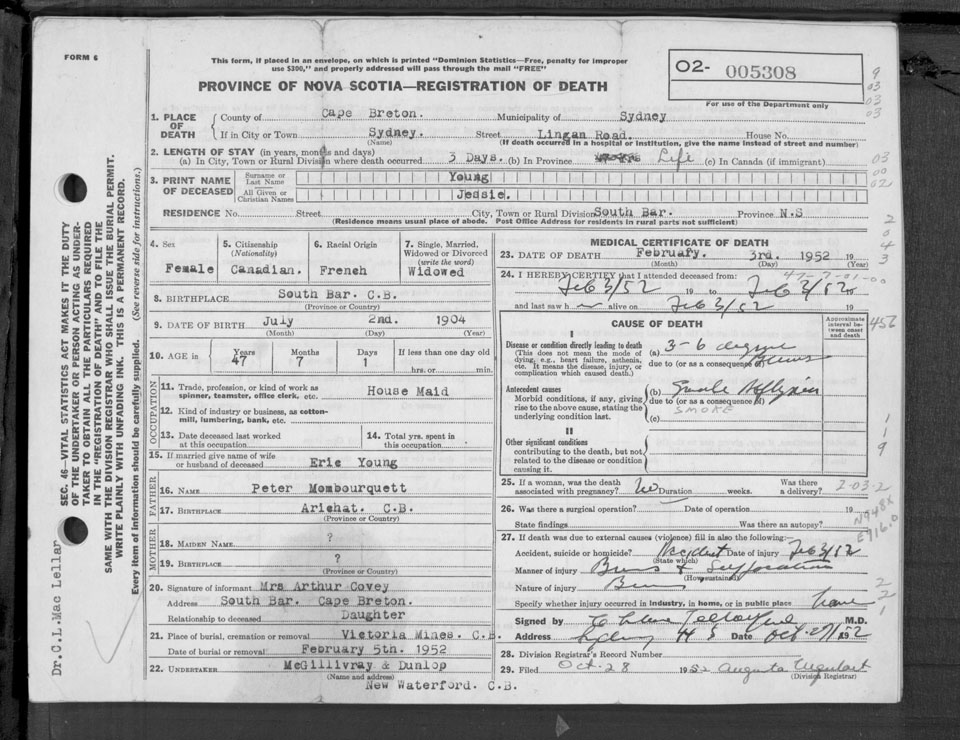 FORM 6
This form, if placed in an envelope, on which is printed "Dominion Statistics—Free, penalty for improper
use $300," and properly addressed will pass through the mail "FREE"
PROVINCE OF NOVA SCOTIA—REGISTRATION OF DEATH
O2- 005308
For use of the Department only
1. PLACE OF DEATH
County of Cape Breton. Municipality of Sydney
If in City or Town Sydney. Street Lingan Road. House No.
(Name) (If death occurred in a hospital or institution, give the name instead of street and number)
2. LENGTH OF STAY (in years, months and days)
(a) In City, Town or Rural Division where death occurred 3 Days. (b) In Province Life (c) In Canada (if immigrant)
3. PRINT NAME OF DECEASED
Surname or Last Name Young
All Given or Christian Names Jessie.
RESIDENCE No. Street City, Town or Rural Division South Bar. Province N.S
(Residence means usual place of abode. Post Office Address for residents in rural parts not sufficient)
4. Sex Female
5. Citizenship (Nationality) Canadian.
6. Racial Origin French
7. Single, Married, Widowed or Divorced (write the word) Widowed
8. BIRTHPLACE South Bar. C.B.
(Province or Country)
9. DATE OF BIRTH July 2nd. 1904
(Month) (Day) (Year)
10. AGE in Years 47 Months 7 Days 1 If less than one day old hrs. or min.
OCCUPATION
11. Trade, profession, or kind of work as spinner, teamster, office clerk, etc. House Maid
12. Kind of industry or business, as cotton-mill, lumbering, bank, etc.
13. Date deceased last worked at this occupation
14. Total yrs. spent in this occupation
15. If married give name of wife or husband of deceased Eric Young
FATHER
16. NAME Peter Mombourquett
17. BIRTHPLACE Arichat. C.B.
(Province or Country)
MOTHER
18. MAIDEN NAME ?
19. BIRTHPLACE ?
(Province or Country)
20. Signature of informant Mrs Arthur Covey
Address South Bar. Cape Breton.
Relationship to deceased Daughter
21. Place of burial, cremation or removal Victoria Mines. C.B.
Date of burial or removal February 5th. 1952
22. UNDERTAKER McGillivray & Dunlop
(Name and address)
New Waterford. C.B.
MEDICAL CERTIFICATE OF DEATH
23. DATE OF DEATH February. 3rd. 1952 19
(Month) (Day) (Year)
24. I HEREBY CERTIFY that I attended deceased from: 47-7-01-00
Feb 3/52 19 to Feb 3/52 19
and last saw h er alive on Feb 3/52 19
CAUSE OF DEATH
Approximate interval between onset and death
I
Disease or condition directly leading to death
(This does not mean the mode of dying, e.g., heart failure, asthenia, etc. It means the disease, injury, or complication which caused death.)
(a) 3-6 degree Burns
due to (or as a consequence of)
Antecedent causes
Morbid conditions, if any, giving rise to the above cause, stating the underlying condition last.
(b) Smoke
due to (or as a consequence of)
SMOKE
(c)
II
Other significant conditions
contributing to the death, but not related to the disease or condition causing it.
25. If a woman, was the death associated with pregnancy? No Duration weeks. Was there a delivery? 2-03-2
26. Was there a surgical operation? Date of operation 19
State findings Was there an autopsy?
27. If death was due to external causes (violence) fill in also the following:
Accident, suicide or homicide? Accident Date of injury Feb 3/52
(State which)
Manner of injury Burns & Suffocation
(How sustained)
Nature of injury Burns
Specify whether injury occurred in industry, in home, or in public place home
Signed by M.D.
Address Sydney N S Date Oct 27/1952
28. Division Registrar's Record Number
29. Filed Oct-28 1952 Augusta Urquhart
(Division Registrar)
SEC. 46—VITAL STATISTICS ACT MAKES IT THE DUTY
OF THE UNDERTAKER OR PERSON ACTING AS UNDER-
TAKER TO OBTAIN ALL THE PARTICULARS REQUIRED
IN THE "REGISTRATION OF DEATH" AND TO FILE THE
SAME WITH THE DIVISION REGISTRAR WHO SHALL ISSUE THE BURIAL PERMIT.
WRITE PLAINLY WITH UNFADING INK. THIS IS A PERMANENT RECORD.
Every item of information should be carefully supplied. (See reverse side for instructions.)
Dr.C.L.Mac Lellar
9
03
03
03
03
00
02
2
0
4
3
456
1
1
9
N948X
E916.0
2
2
1